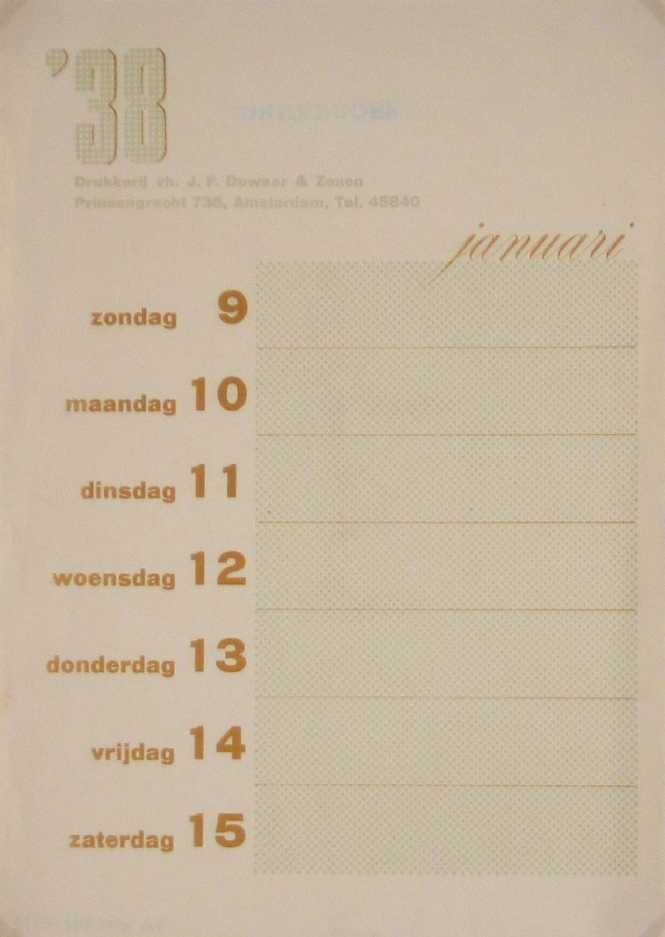 '38
Drukkerij vh. J. F. Duwaer & Zonen
Prinsengracht 735, Amsterdam, Tel. 45840
januari
zondag 9
maandag 10
dinsdag 11
woensdag 12
donderdag 13
vrijdag 14
zaterdag 15